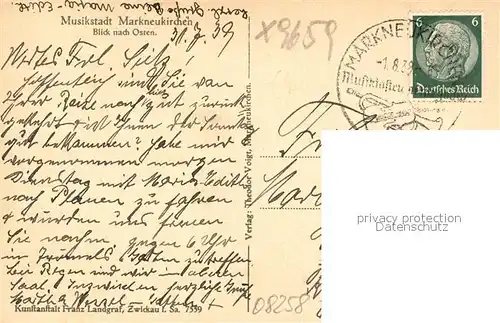 herzl. Grüße Deine Maria Edith
Musikstadt Markneukirchen
Blick nach Osten.
31/7.39
X9659
MARKNEUKIRCHEN
-1.8.39
6 6
Deutsches Reich
Wertes Frl.
Hoffentlich sind Sie von
Ihrer Reise noch gut zurück
gekehrt ist Ihnen der
gut bekommen? Habe mir
vorgenommen morgen
Dienstag mit Maria-Edith
nach Plauen zu fahren
+ würden uns freuen
Sie nachm. gegen 6 Uhr
in Garten zu treffen
bei Regen sind wir im oberen
Saal. Inzwischen herzliche Grüße
Verlag: Theodor Voigt, Markneukirchen.
Kunstanstalt Franz Landgraf, Zwickau i. Sa. 7559
08258
privacy protection
Datenschutz